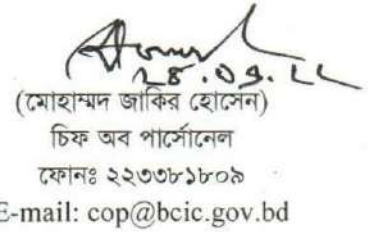 (মোহাম্মদ জাকির হোসেন)
চিফ অব পার্সোনেল
ফোনঃ ২২৩৩৮১৮০৯
E-mail: cop@bcic.gov.bd